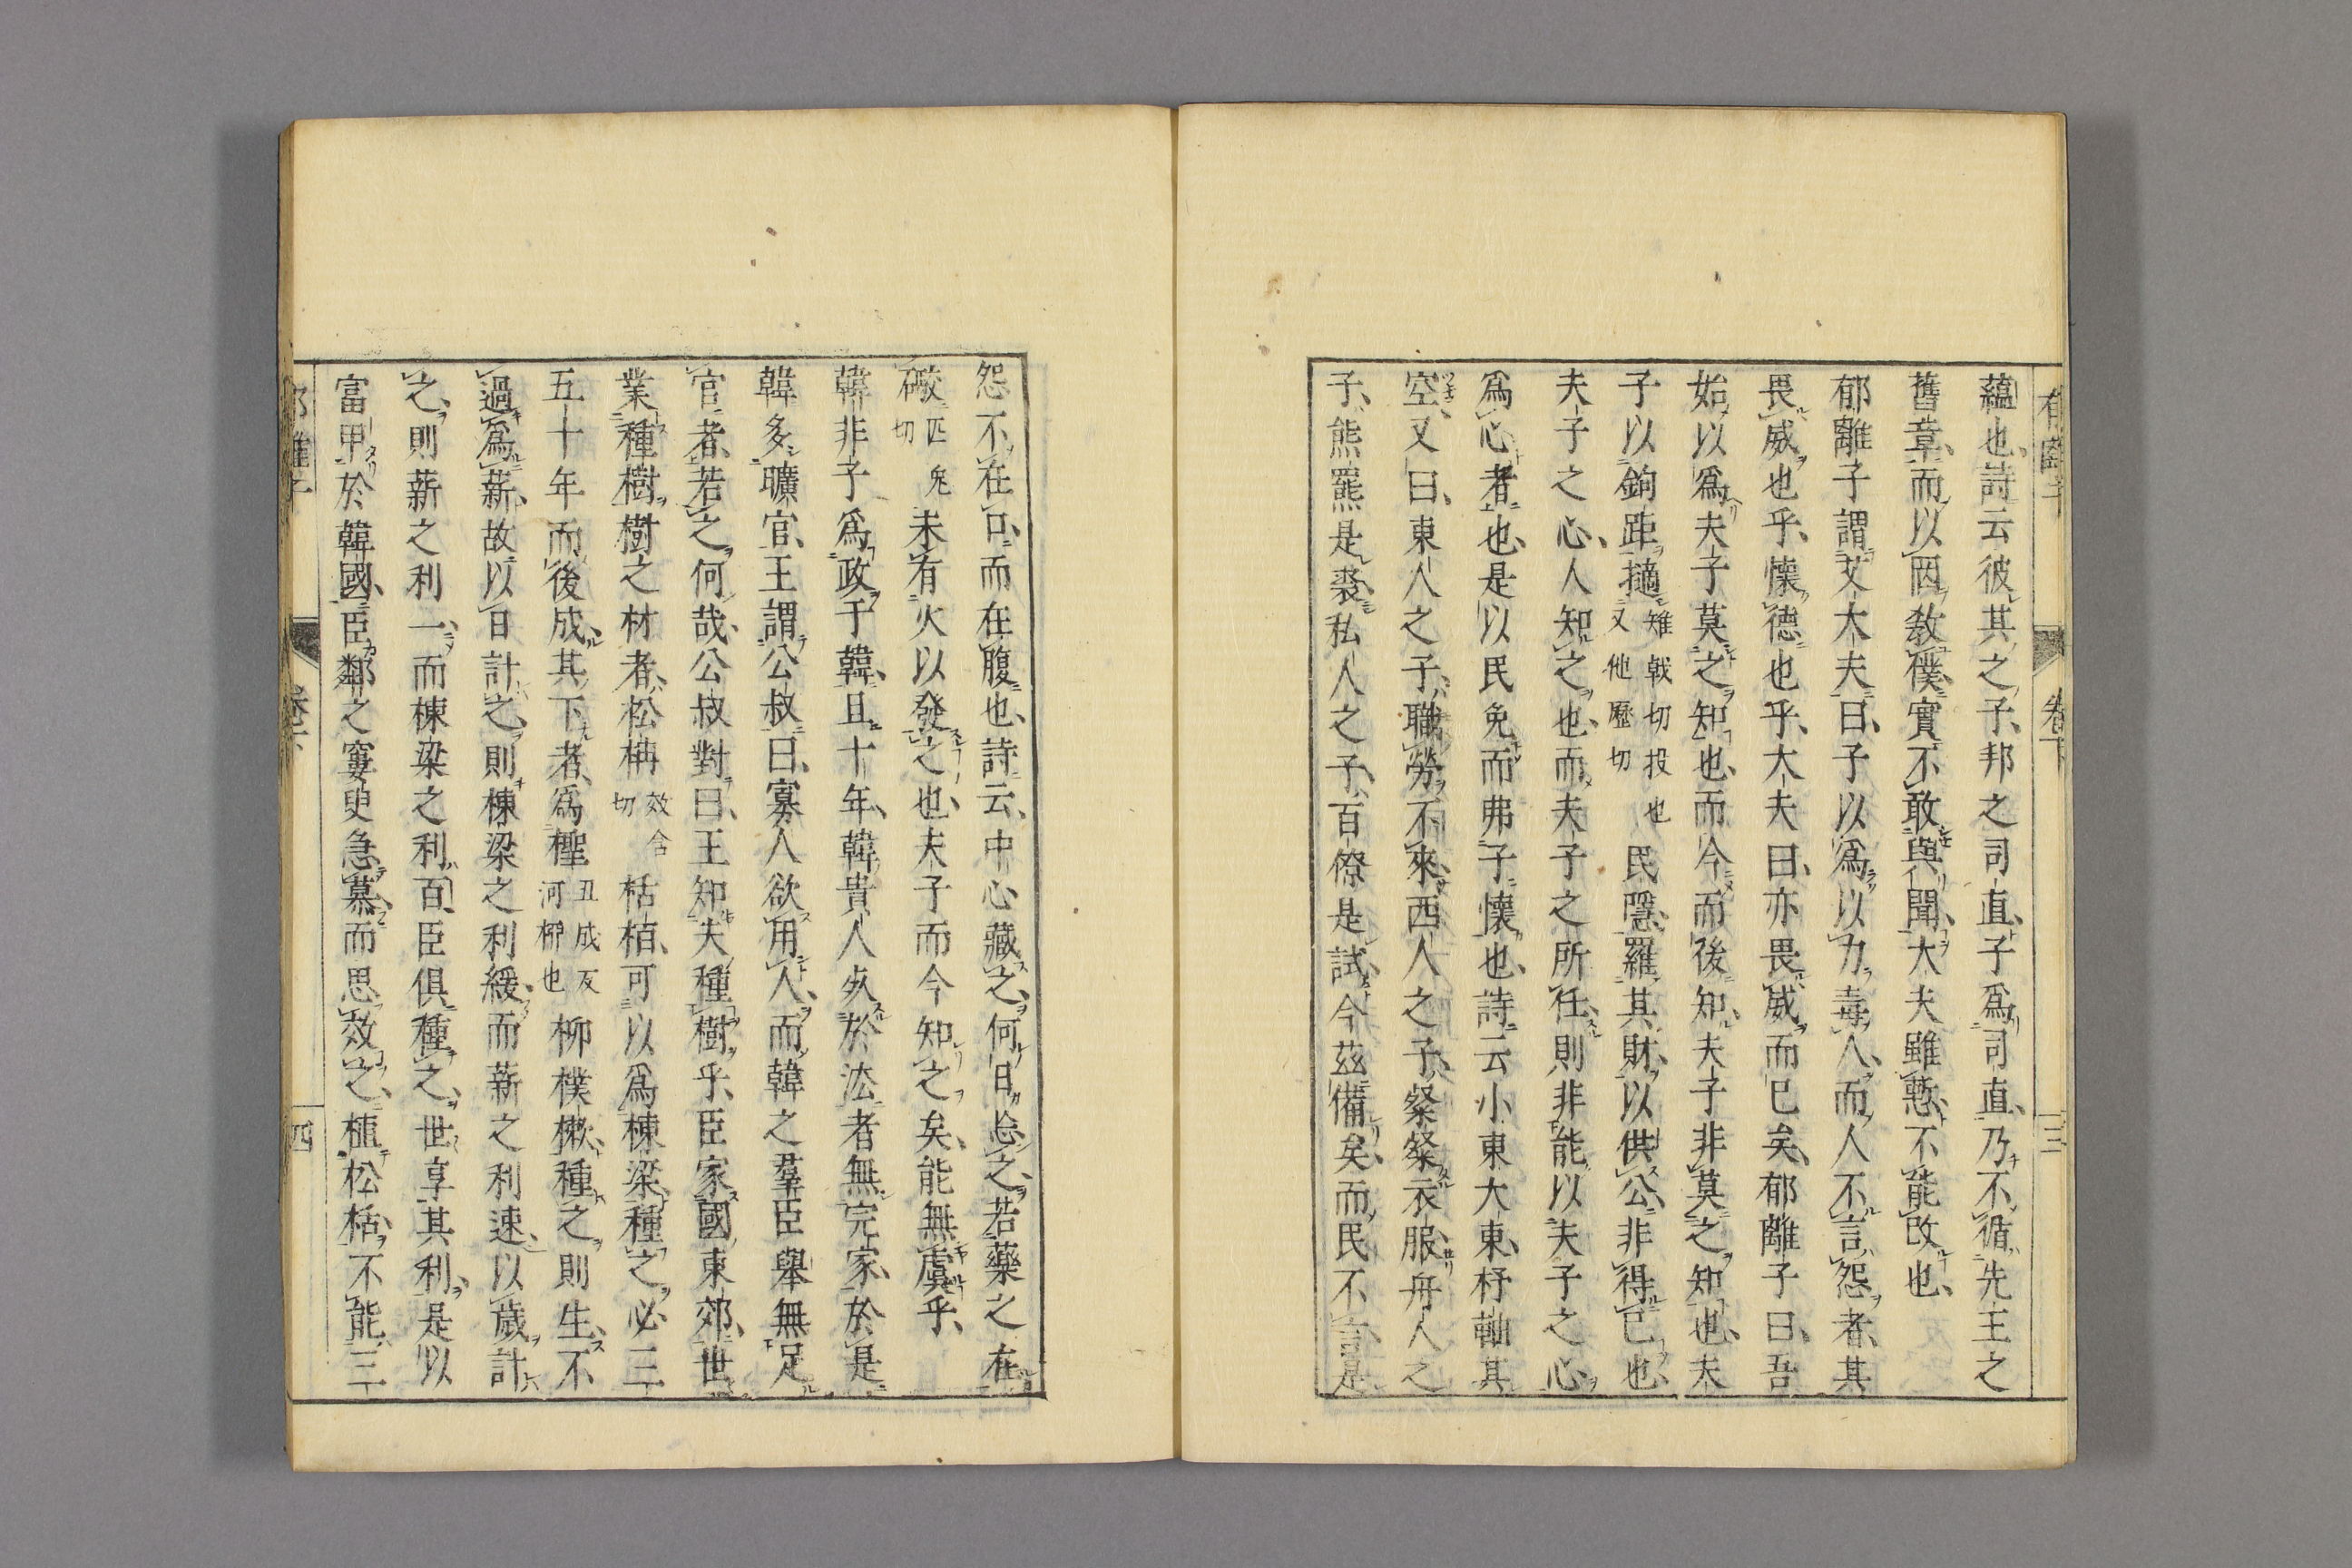 郁離子 卷下 三
蘊也詩云彼其之子邦之司直子爲司直乃不循先王之
舊章而以因敎僕實不敢與聞大夫雖慙不能改也
郁離子謂艾大夫曰子以爲以力毒人而人不言怨者其
畏威也乎懷德也乎大夫曰亦畏威而已矣郁離子曰吾
始以爲夫子莫之知也而今而後知夫子非莫之知也夫
子以鉤距擿雉戟切投也又他歷切民隱羅其財以供公非得已也
夫子之心人知之也而夫子之所任則非能以夫子之心
爲心者也是以民免而弗子懷也詩云小東大東杼軸其
空又曰東人之子職勞不來西人之子粲粲衣服舟人之
子熊羆是裘私人之子百僚是試今茲備矣而民不言是
怨不在口而在腹也詩云中心藏之何日忘之若藥之在
礮匹皃切未有火以發之也夫子而今知之矣能無虞乎
韓非子爲政于韓且十年韓貴人夨於法者無完家於是
韓多曠官王謂公叔曰寡人欲用人而韓之羣臣舉無足
官者若之何哉公叔對曰王知夫種樹乎臣家國東郊世
業種樹樹之材者松枏效含切栝栢可以爲棟梁種之必三
五十年而後成其下者爲檉丑成反河柳也柳樸樕種之則生不
過爲薪故以日計之則棟梁之利緩而薪之利速以歲計
之則薪之利一而棟梁之利百臣俱種之世享其利是以
富甲於韓國臣鄰之窶叟急慕而思效之植松栝不能三
郁離子 卷下 四